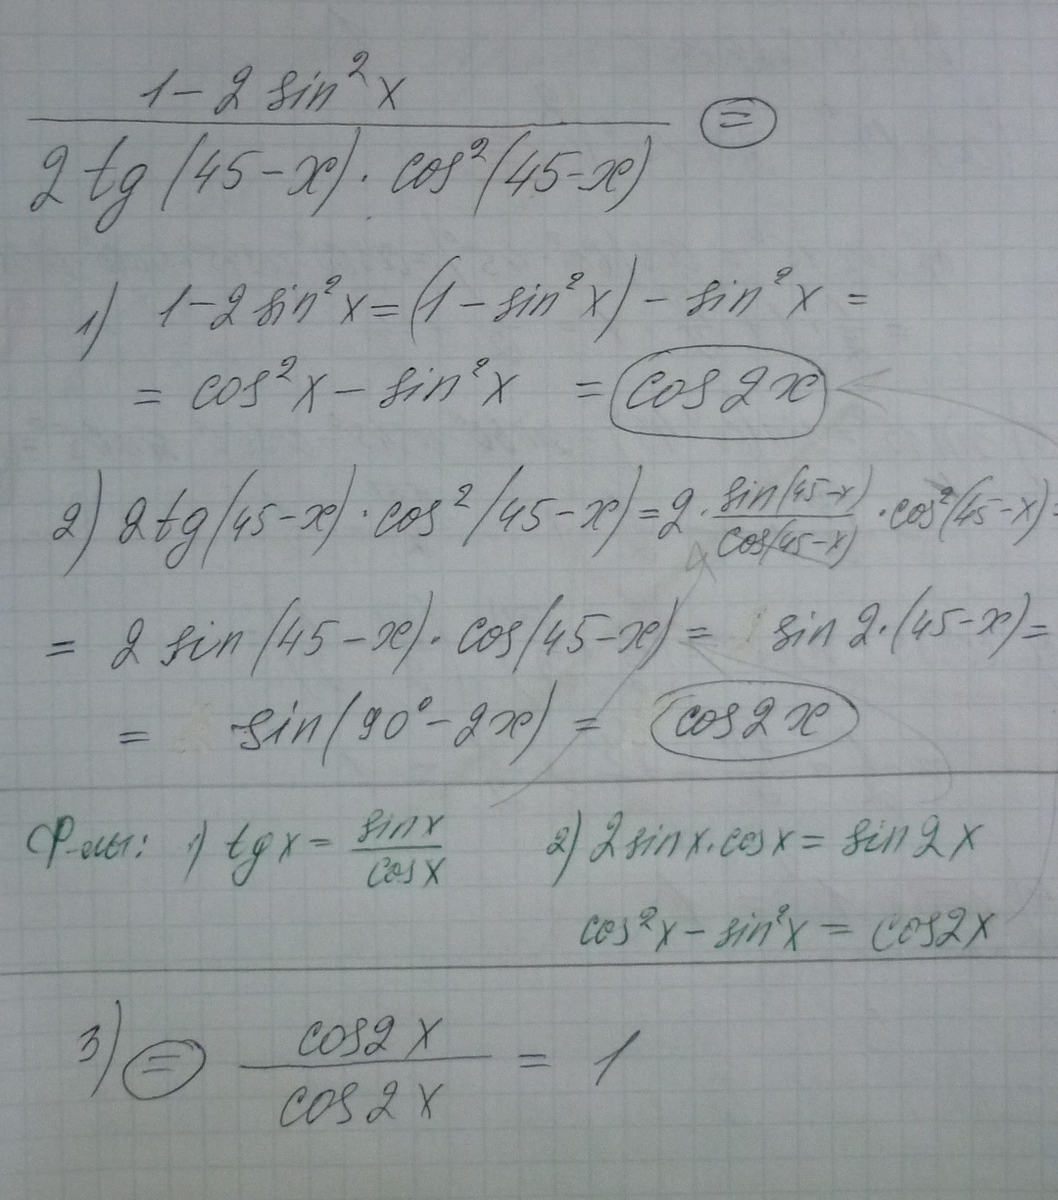 1-2 sin²x
2 tg (45-x) · cos² (45-x) =
1) 1-2 sin²x = (1 - sin²x) - sin²x =
= cos²x - sin²x = cos 2x
2) 2 tg (45-x) · cos² (45-x) = 2 · sin(45-x)/cos(45-x) · cos²(45-x) =
= 2 sin (45-x) · cos (45-x) = sin 2·(45-x) =
= sin (90° - 2x) = cos 2x
Ф-лы: 1) tg x = sin x/cos x 2) 2 sin x · cos x = sin 2x
cos²x - sin²x = cos 2x
3) = cos 2x/cos 2x = 1